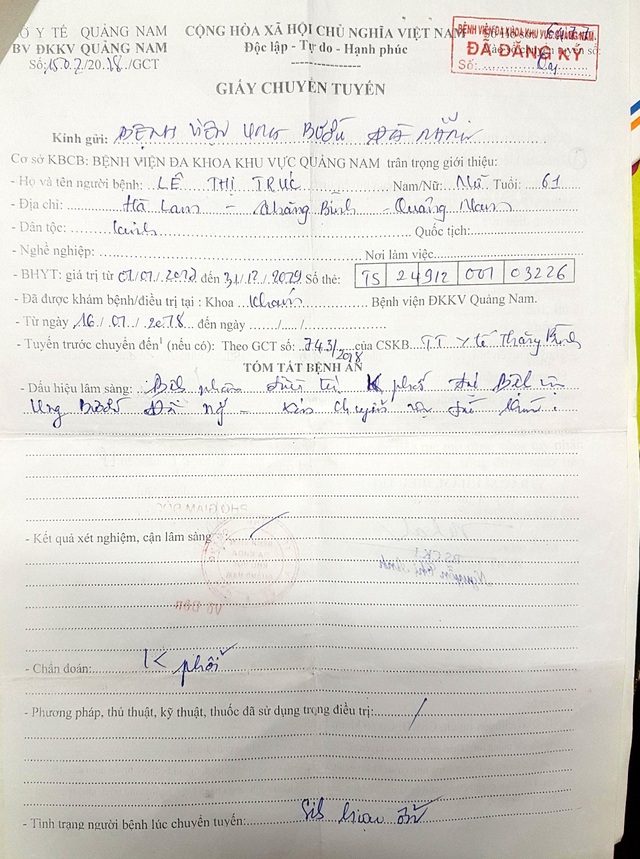 Ở Y TẾ QUẢNG NAM
BV ĐKKV QUẢNG NAM
Số: 1507/2018/GCT
CỘNG HÒA XÃ HỘI CHỦ NGHĨA VIỆT NAM
Độc lập - Tự do - Hạnh phúc
BỆNH VIỆN ĐA KHOA KHU VỰC QUẢNG NAM
ĐÃ ĐĂNG KÝ
Số:
GIẤY CHUYỂN TUYẾN
Kính gửi: BỆNH VIỆN UNG BƯỚU ĐÀ NẴNG
Cơ sở KBCB: BỆNH VIỆN ĐA KHOA KHU VỰC QUẢNG NAM trân trọng giới thiệu:
- Họ và tên người bệnh: LÊ THỊ TRÚC Nam/Nữ: Nữ Tuổi: 61
- Địa chỉ: Hà Lam - Thăng Bình - Quảng Nam
- Dân tộc: kinh Quốc tịch:
- Nghề nghiệp: Nơi làm việc
- BHYT: giá trị từ 01/01/ đến 31/12/ Số thẻ: TS 24912 001 03226
- Đã được khám bệnh/điều trị tại : Khoa Khám Bệnh viện ĐKKV Quảng Nam.
- Từ ngày 16/07/2018 đến ngày ....../....../
- Tuyến trước chuyển đến¹ (nếu có): Theo GCT số: 743/2018 của CSKB TT Y tế Thăng Bình
TÓM TẮT BỆNH ÁN
- Dấu hiệu lâm sàng: K phổi
Ung Bướu Đà Nẵng - xin chuyển
PHÓ GIÁM ĐỐC
- Kết quả xét nghiệm, cận lâm sàng
BSCKI
- Chẩn đoán: K phổi
- Phương pháp, thủ thuật, kỹ thuật, thuốc đã sử dụng trong điều trị: /
- Tình trạng người bệnh lúc chuyển tuyến: